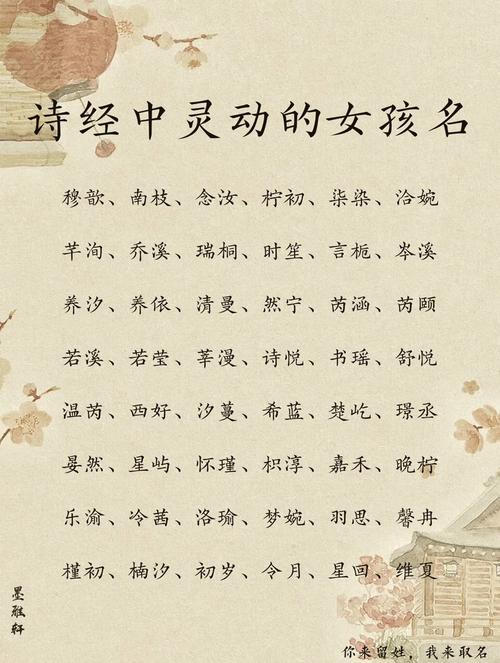 诗经中灵动的女孩名
穆歆、南枝、念汝、柠初、柒染、洽婉
芊洵、乔溪、瑞桐、时笙、言栀、岑溪
养汐、养依、清曼、然宁、芮涵、芮颐
若溪、若莹、莘漫、诗悦、书瑶、舒悦
温芮、西好、汐蔓、希蓝、楚屹、璟丞
晏然、星屿、怀瑾、枳淳、嘉禾、晚柠
乐渝、冷茜、洛瑜、梦婉、羽思、馨冉
槿初、楠汐、初岁、令月、星回、维夏
墨雅轩
你来留姓，我来取名